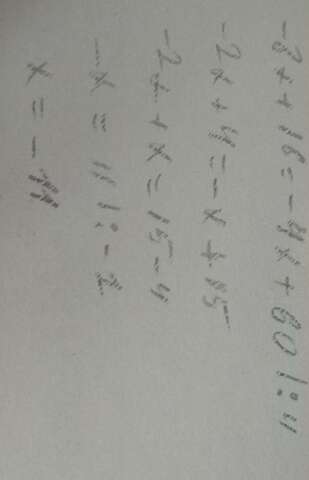 -8x+16=-4x+60 |:4
-2x+4=-x+15
-2x+x=15-4
-x=11 |:-
x=-11